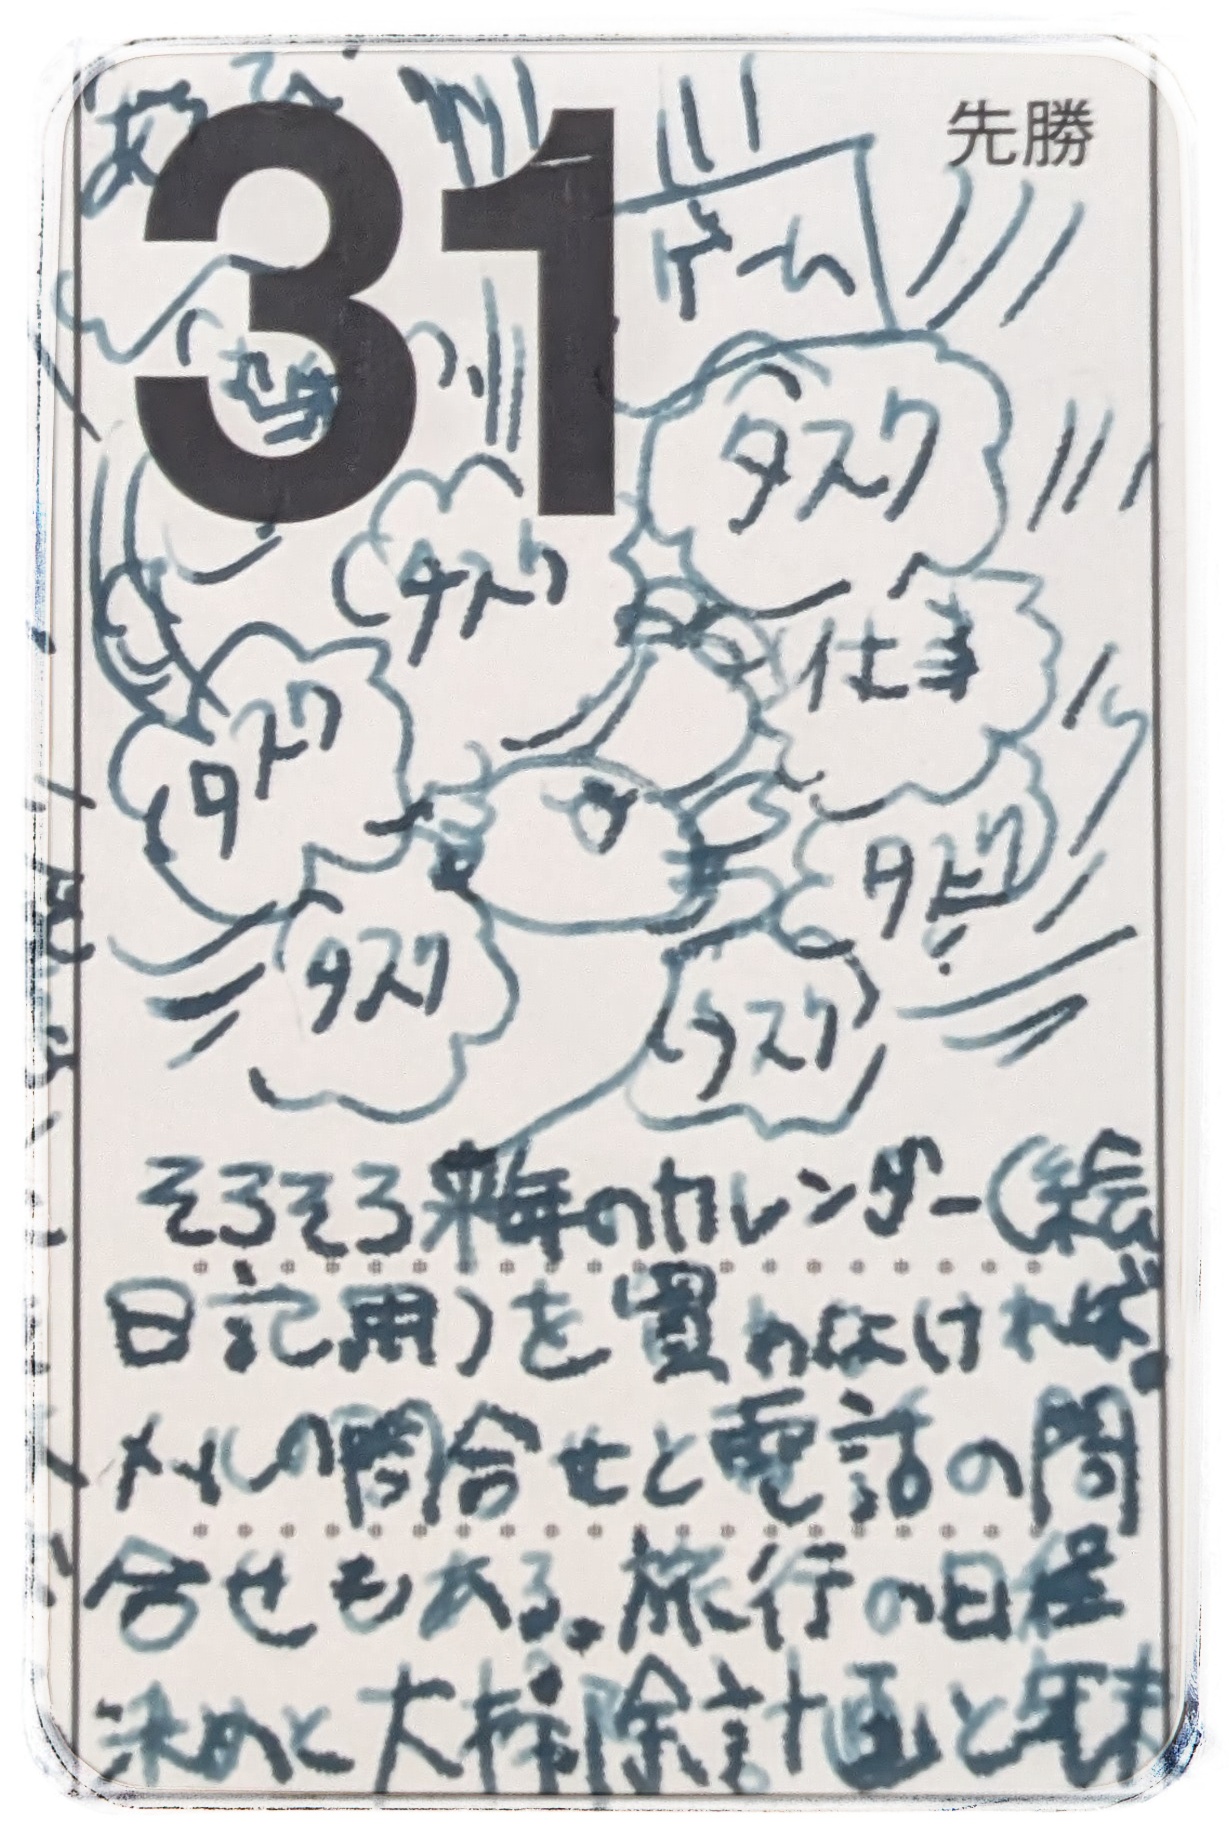 31
先勝
ゲーム
タスク
タスク
仕事
タスク
タスク
タスク
タスク
そろそろ来年のカレンダー(絵
日記用)を買わなければ。
メールの問合せと電話の問
合せもある。旅行の日程
決めと大掃除計画と年末